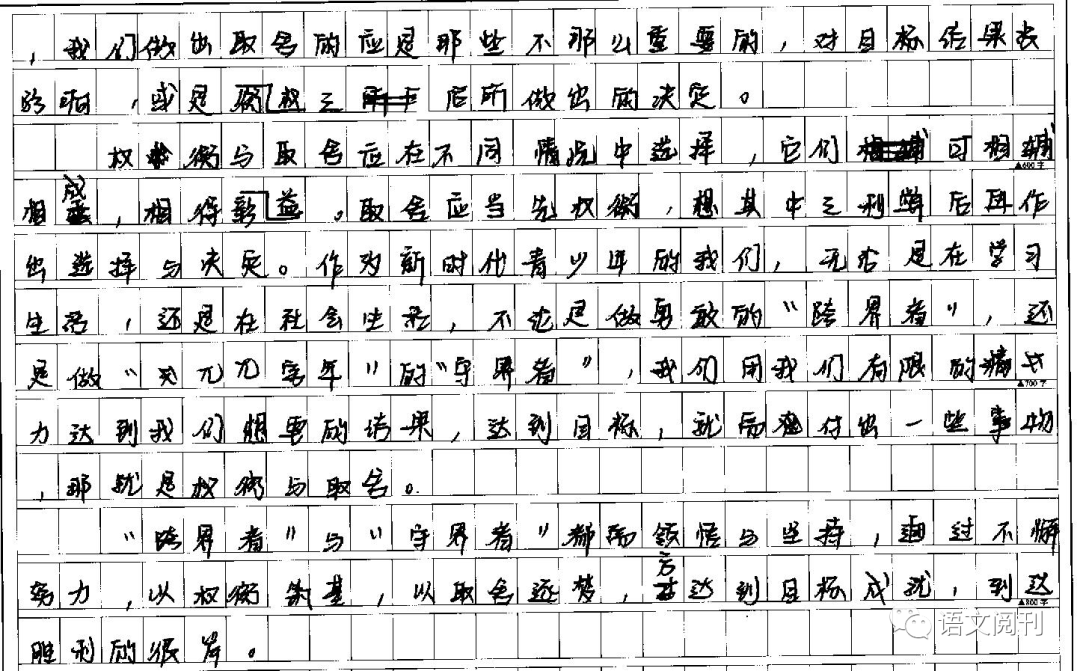 ，我们做出取舍的应是那些不那么重要的，对目标结果没
影响，或是权之后所做出的决定。
权衡与取舍应在不同情况中选择，它们可相辅
▲600字
相成，相得益。取舍应当先权衡，想其中之利弊后再作
出选择与决定。作为新时代青少年的我们，无否是在学习
生活，还是在社会生活，不论是做勇敢的“跨界者”，还
是做“兀兀穷年”的“守界者”，我们用我们有限的精
▲700字
力达到我们想要的结果，达到目标，就需付出一些事物
，那就是权衡与取舍。
“跨界者”与“守界者”都需领悟与坚持，通过不懈
努力，以权衡筑基，以取舍逐梦，方达到目标成就，到达
▲800字
胜利的彼岸。
语文阅刊